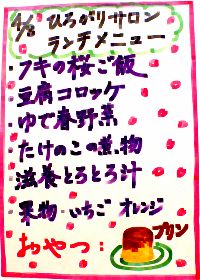 4/8 ひろがりサロン
ランチメニュー
・フキの桜ご飯
・豆腐コロッケ
・ゆで春野菜
・たけのこの煮物
・滋養とろとろ汁
・果物・いちご オレンジ
おやつ：プリン